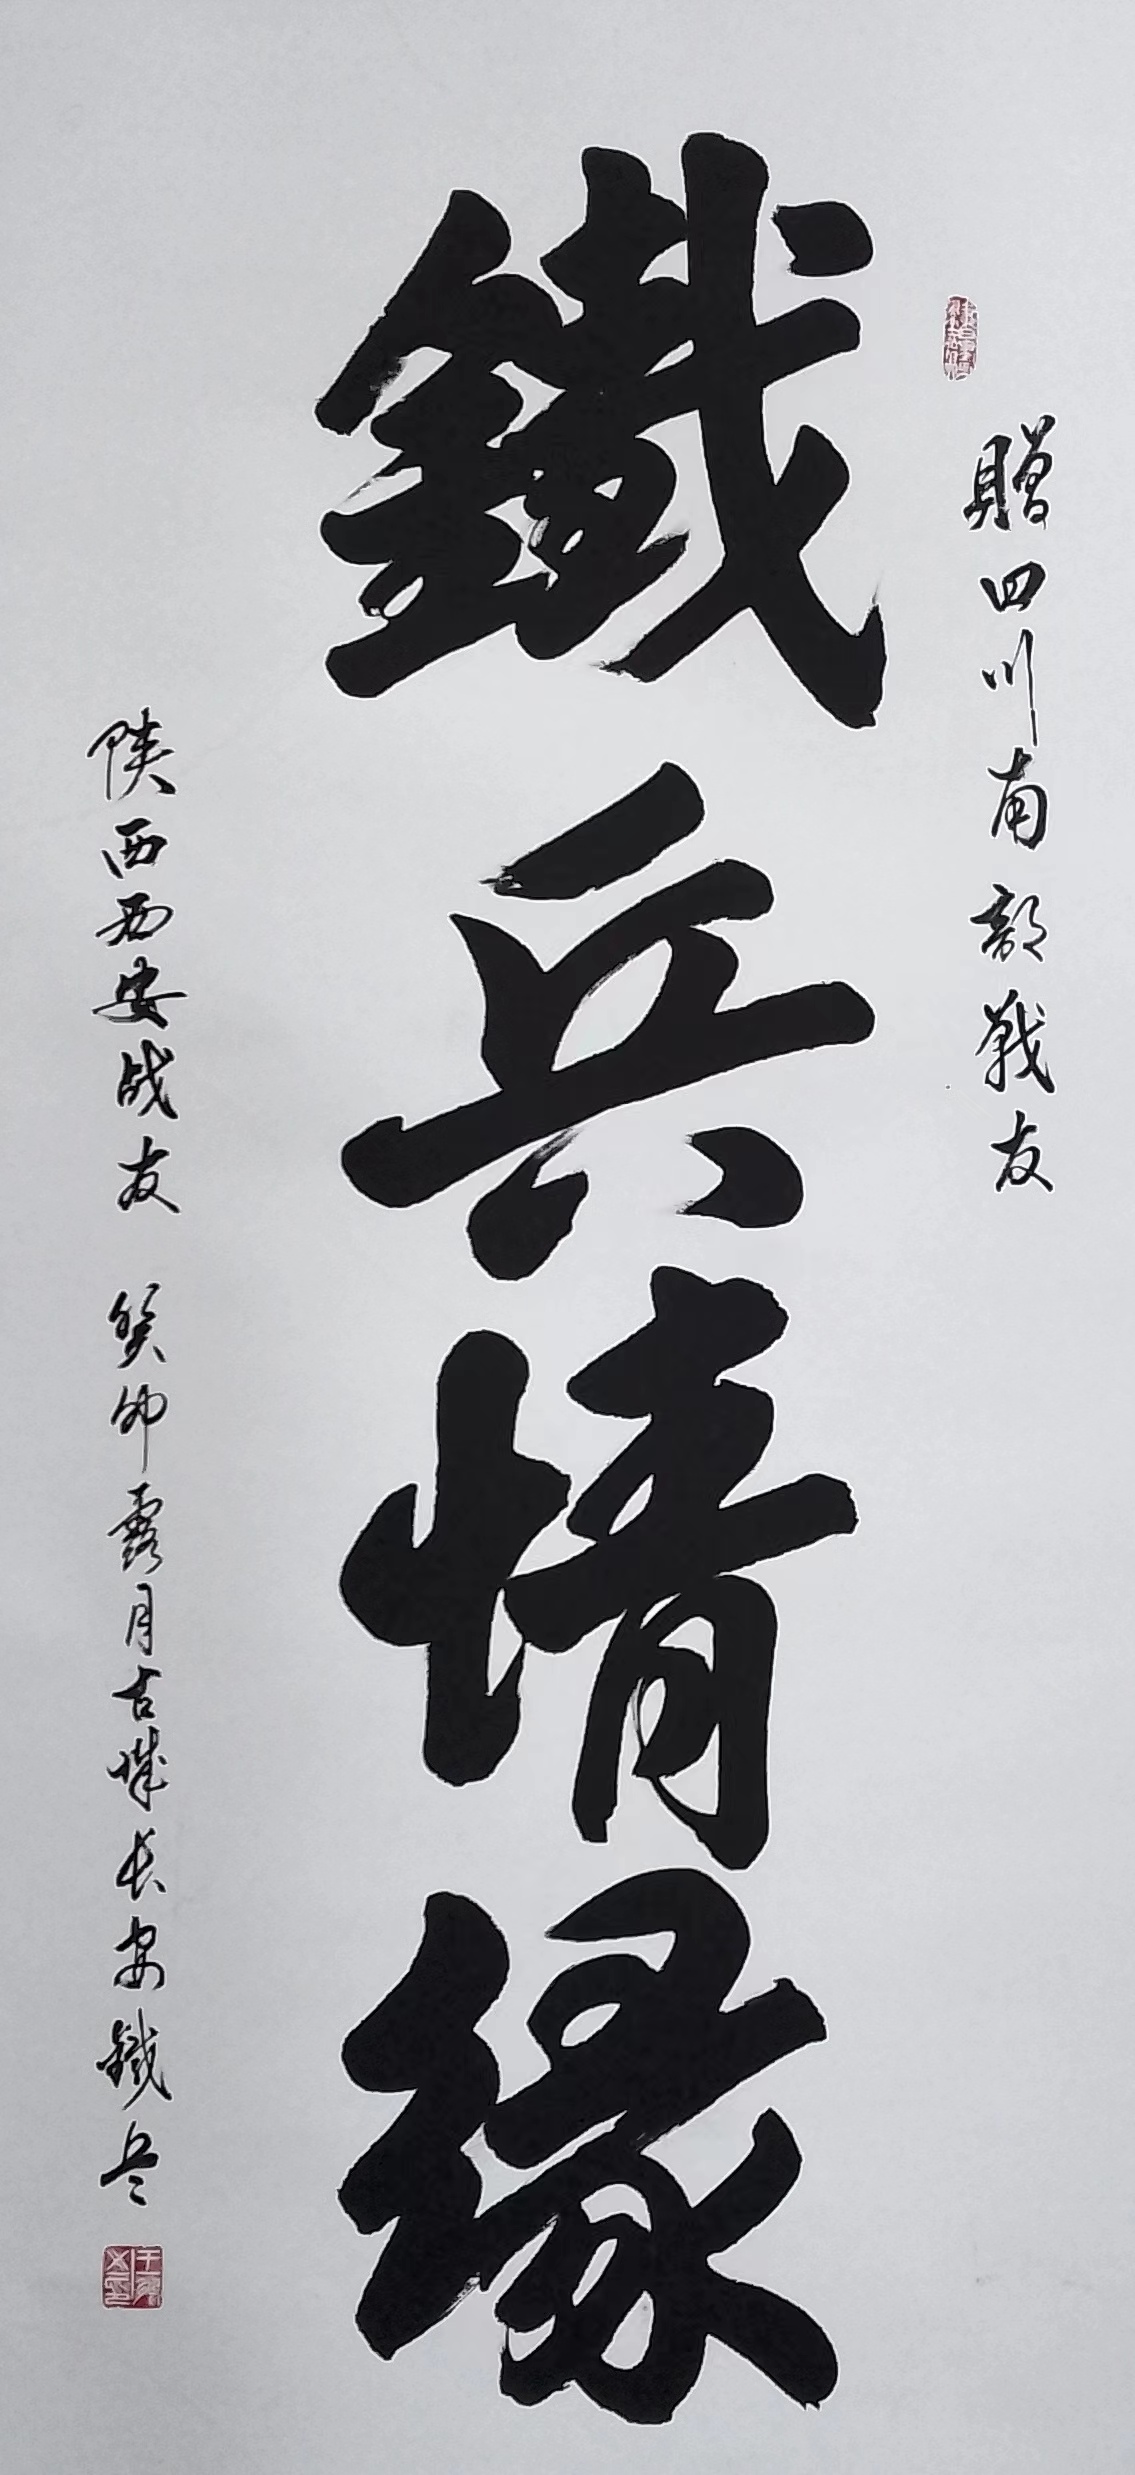 贈四川南部戰友
鐵兵情緣
陕西西安战友 癸卯露月古城长安鐵兵